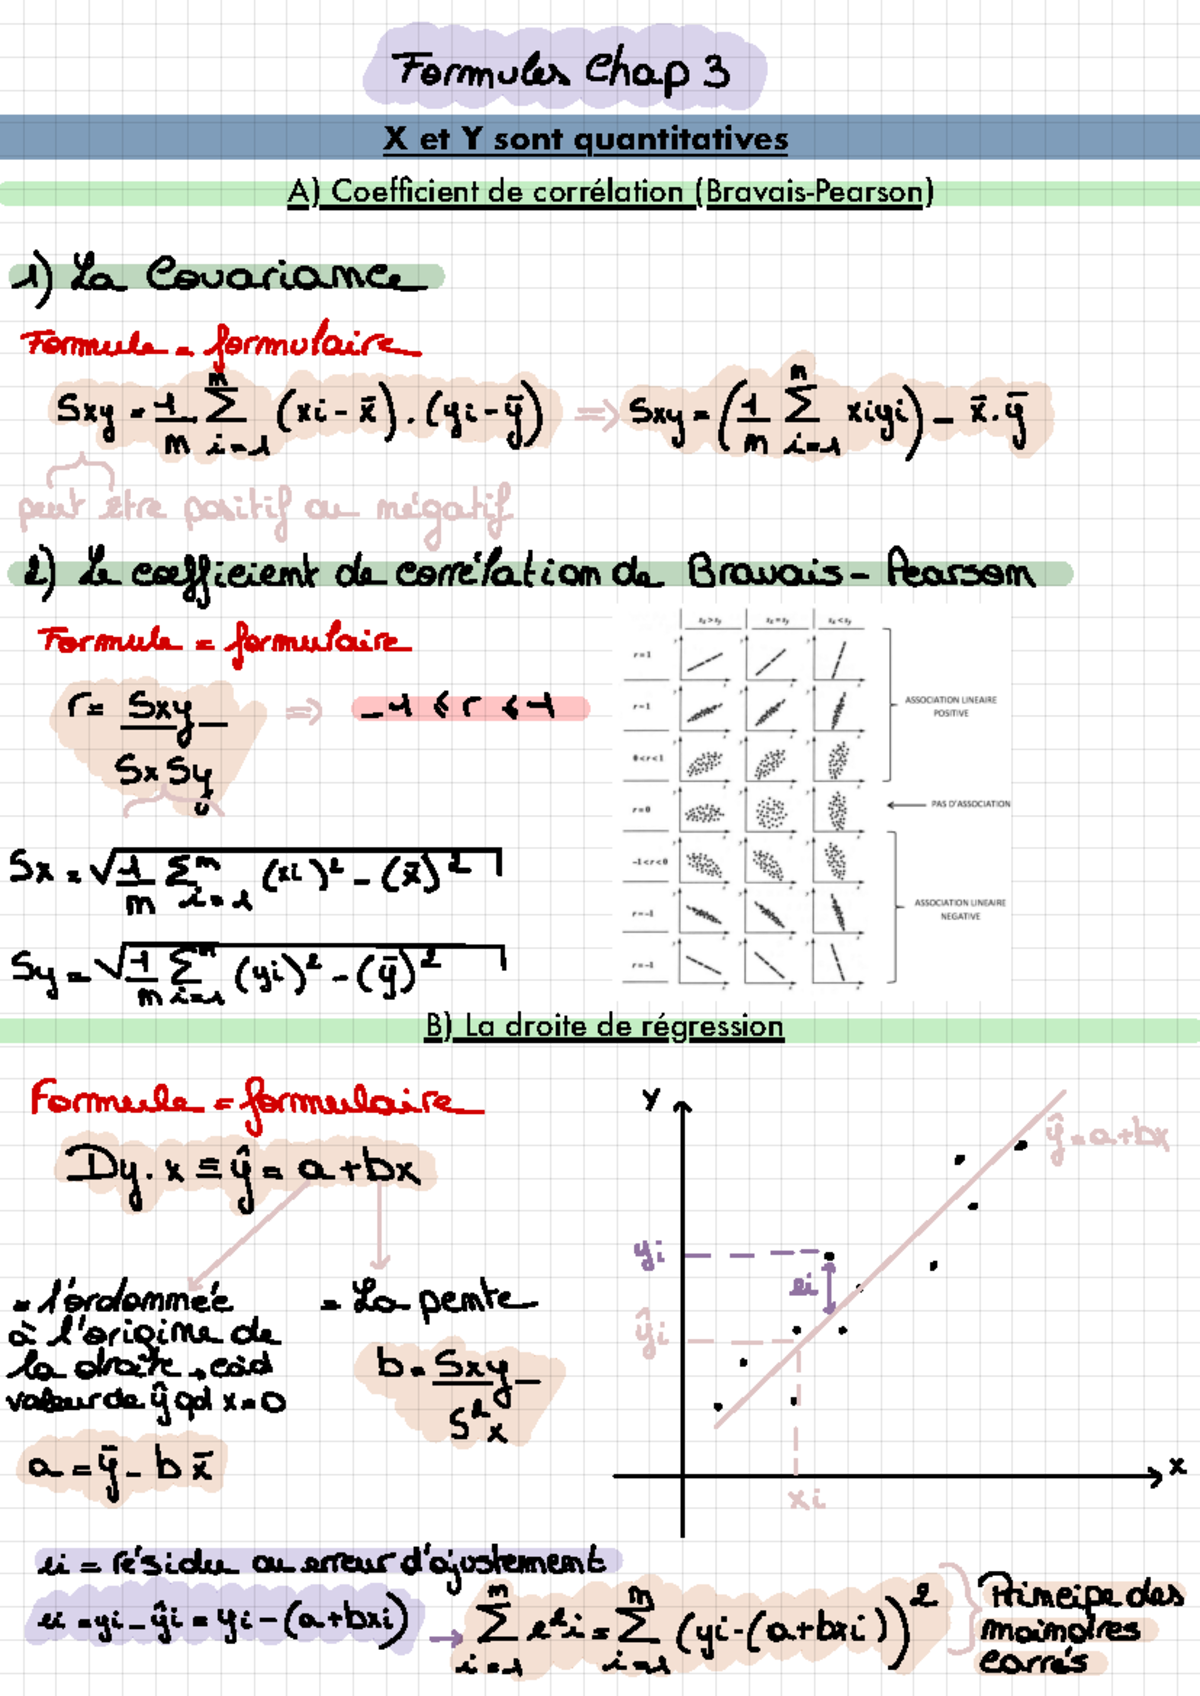 Formules Chap 3
X et Y sont quantitatives
A) Coefficient de corrélation (Bravais-Pearson)
1) La Covariance
Formule = formulaire
Sxy = 1/n ∑ⁿᵢ₌₁ (xi - x̄) . (yi - ȳ) => Sxy = (1/n ∑ⁿᵢ₌₁ xiyi) - x̄ . ȳ
peut être positif ou négatif
2) Le coefficient de corrélation de Bravais - Pearson
Formule = formulaire
r = Sxy / Sx Sy => -1 ≤ r ≤ 1
Sx = √(1/n ∑ⁿᵢ₌₁ (xi)² - (x̄)²)
Sy = √(1/n ∑ⁿᵢ₌₁ (yi)² - (ȳ)²)
sx > sy sx = sy sx < sy
r = 1
r ≈ 1
0 < r < 1
r = 0
-1 < r < 0
r ≈ -1
r = -1
ASSOCIATION LINEAIRE
POSITIVE
PAS D'ASSOCIATION
ASSOCIATION LINEAIRE
NEGATIVE
B) La droite de régression
Formule = formulaire
Dy.x ≡ ŷ = a + bx
= l'ordonnée
à l'origine de
la droite, càd
valeur de ŷ qd x = 0
a = ȳ - b x̄
= La pente
b = Sxy / S²x
Y
ŷ = a + bx
yi
ei
ŷi
xi
x
ei = résidu ou erreur d'ajustement
ei = yi - ŷi = yi - (a + bxi) → ∑ⁿᵢ₌₁ e²i = ∑ⁿᵢ₌₁ (yi - (a + bxi))²
Principe des
moindres
carrés